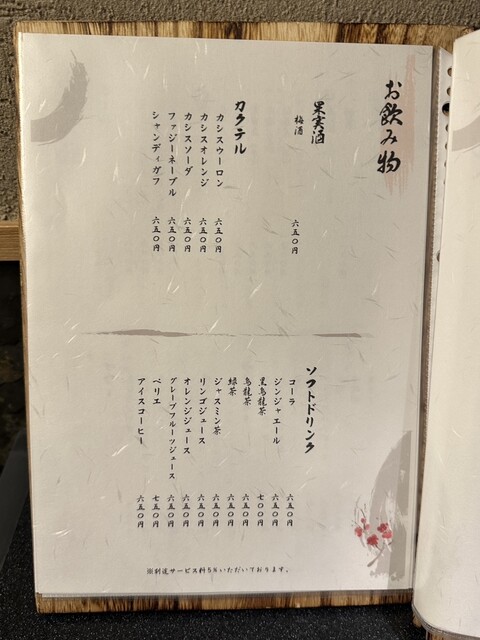 お飲み物
果実酒
梅酒 六五〇円
カクテル
カシスウーロン 六五〇円
カシスオレンジ 六五〇円
カシスソーダ 六五〇円
ファジーネーブル 六五〇円
シャンディガフ 六五〇円
ソフトドリンク
コーラ 六五〇円
ジンジャエール 六五〇円
黒烏龍茶 七〇〇円
烏龍茶 六五〇円
緑茶 六五〇円
ジャスミン茶 六五〇円
リンゴジュース 六五〇円
オレンジジュース 六五〇円
グレープフルーツジュース 六五〇円
ペリエ 七五〇円
アイスコーヒー 六五〇円
※別途サービス料5%いただいております。